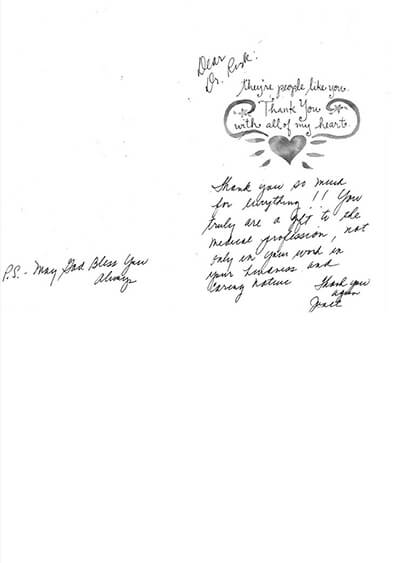 Dear
Dr. Rusk:
they're people like you.
Thank You
with all of my heart
Thank you so much
for everything!! You
truly are a gift to the
medical profession, not
only in your work in
your kindness and
caring nature
Thank you
again
Janet
P.S. - May God Bless You
Always